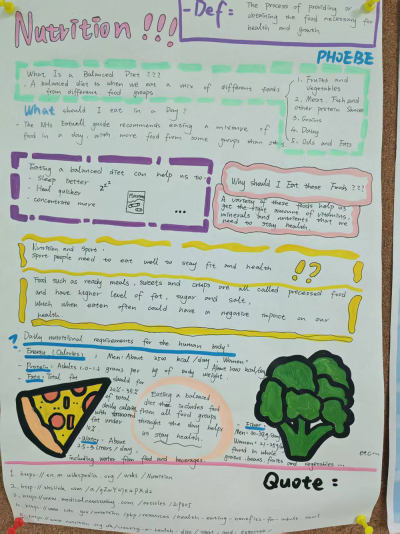 Nutrition !!!
-Def:
The process of providing or
obtaining the food necessary for
health and growth.
PHOEBE
What Is a Balanced Diet ???
- A balanced diet is when we eat a mix of different foods
from different food groups
1. Fruits and
Vegetables
2. Meat, Fish and
other protein Sources
3. Grains
4. Dairy
5. Oils and Fats
What should I eat in a Day?
- The NHS Eatwell guide recommends eating a mixture of
food in a day, with more food from some groups than others
Eating a balanced diet can help us to:
- Sleep better
- Heal quicker
- concentrate more
zzz
...
Why should I Eat these Foods ???
A variety of these foods help us
get the right amounts of vitamins,
minerals and nutrients that we
need to stay health.
Nutrition and Sport:
Sport people need to eat well to stay fit and health
!?
Food such as ready meals, sweets and crisps are all called processed food
and have higher level of fat, sugar and salt,
which when eaten often could have a negative impact on our
health.
? Daily nutritional requirements for the human body:
- Energy (Calories): Men: About 2500 kcal / day - Women:
About 2000 kcal/day
- Protein: Adults 1.0-1.2 grams per kg of body weight.
- Fats: Total fat
should be
20%-35%
of total
daily calories
Eating a balanced
diet that includes food
from all food groups
throughout the day helps
us stay health.
- Water: About
including water from food and beverages.
- Fiber:
Men=
Women=
found in whole
grains, beans, fruits and vegetables ...
etc...
Quote:
1. https://en.m.wikipedia.org/wiki/Nutrition